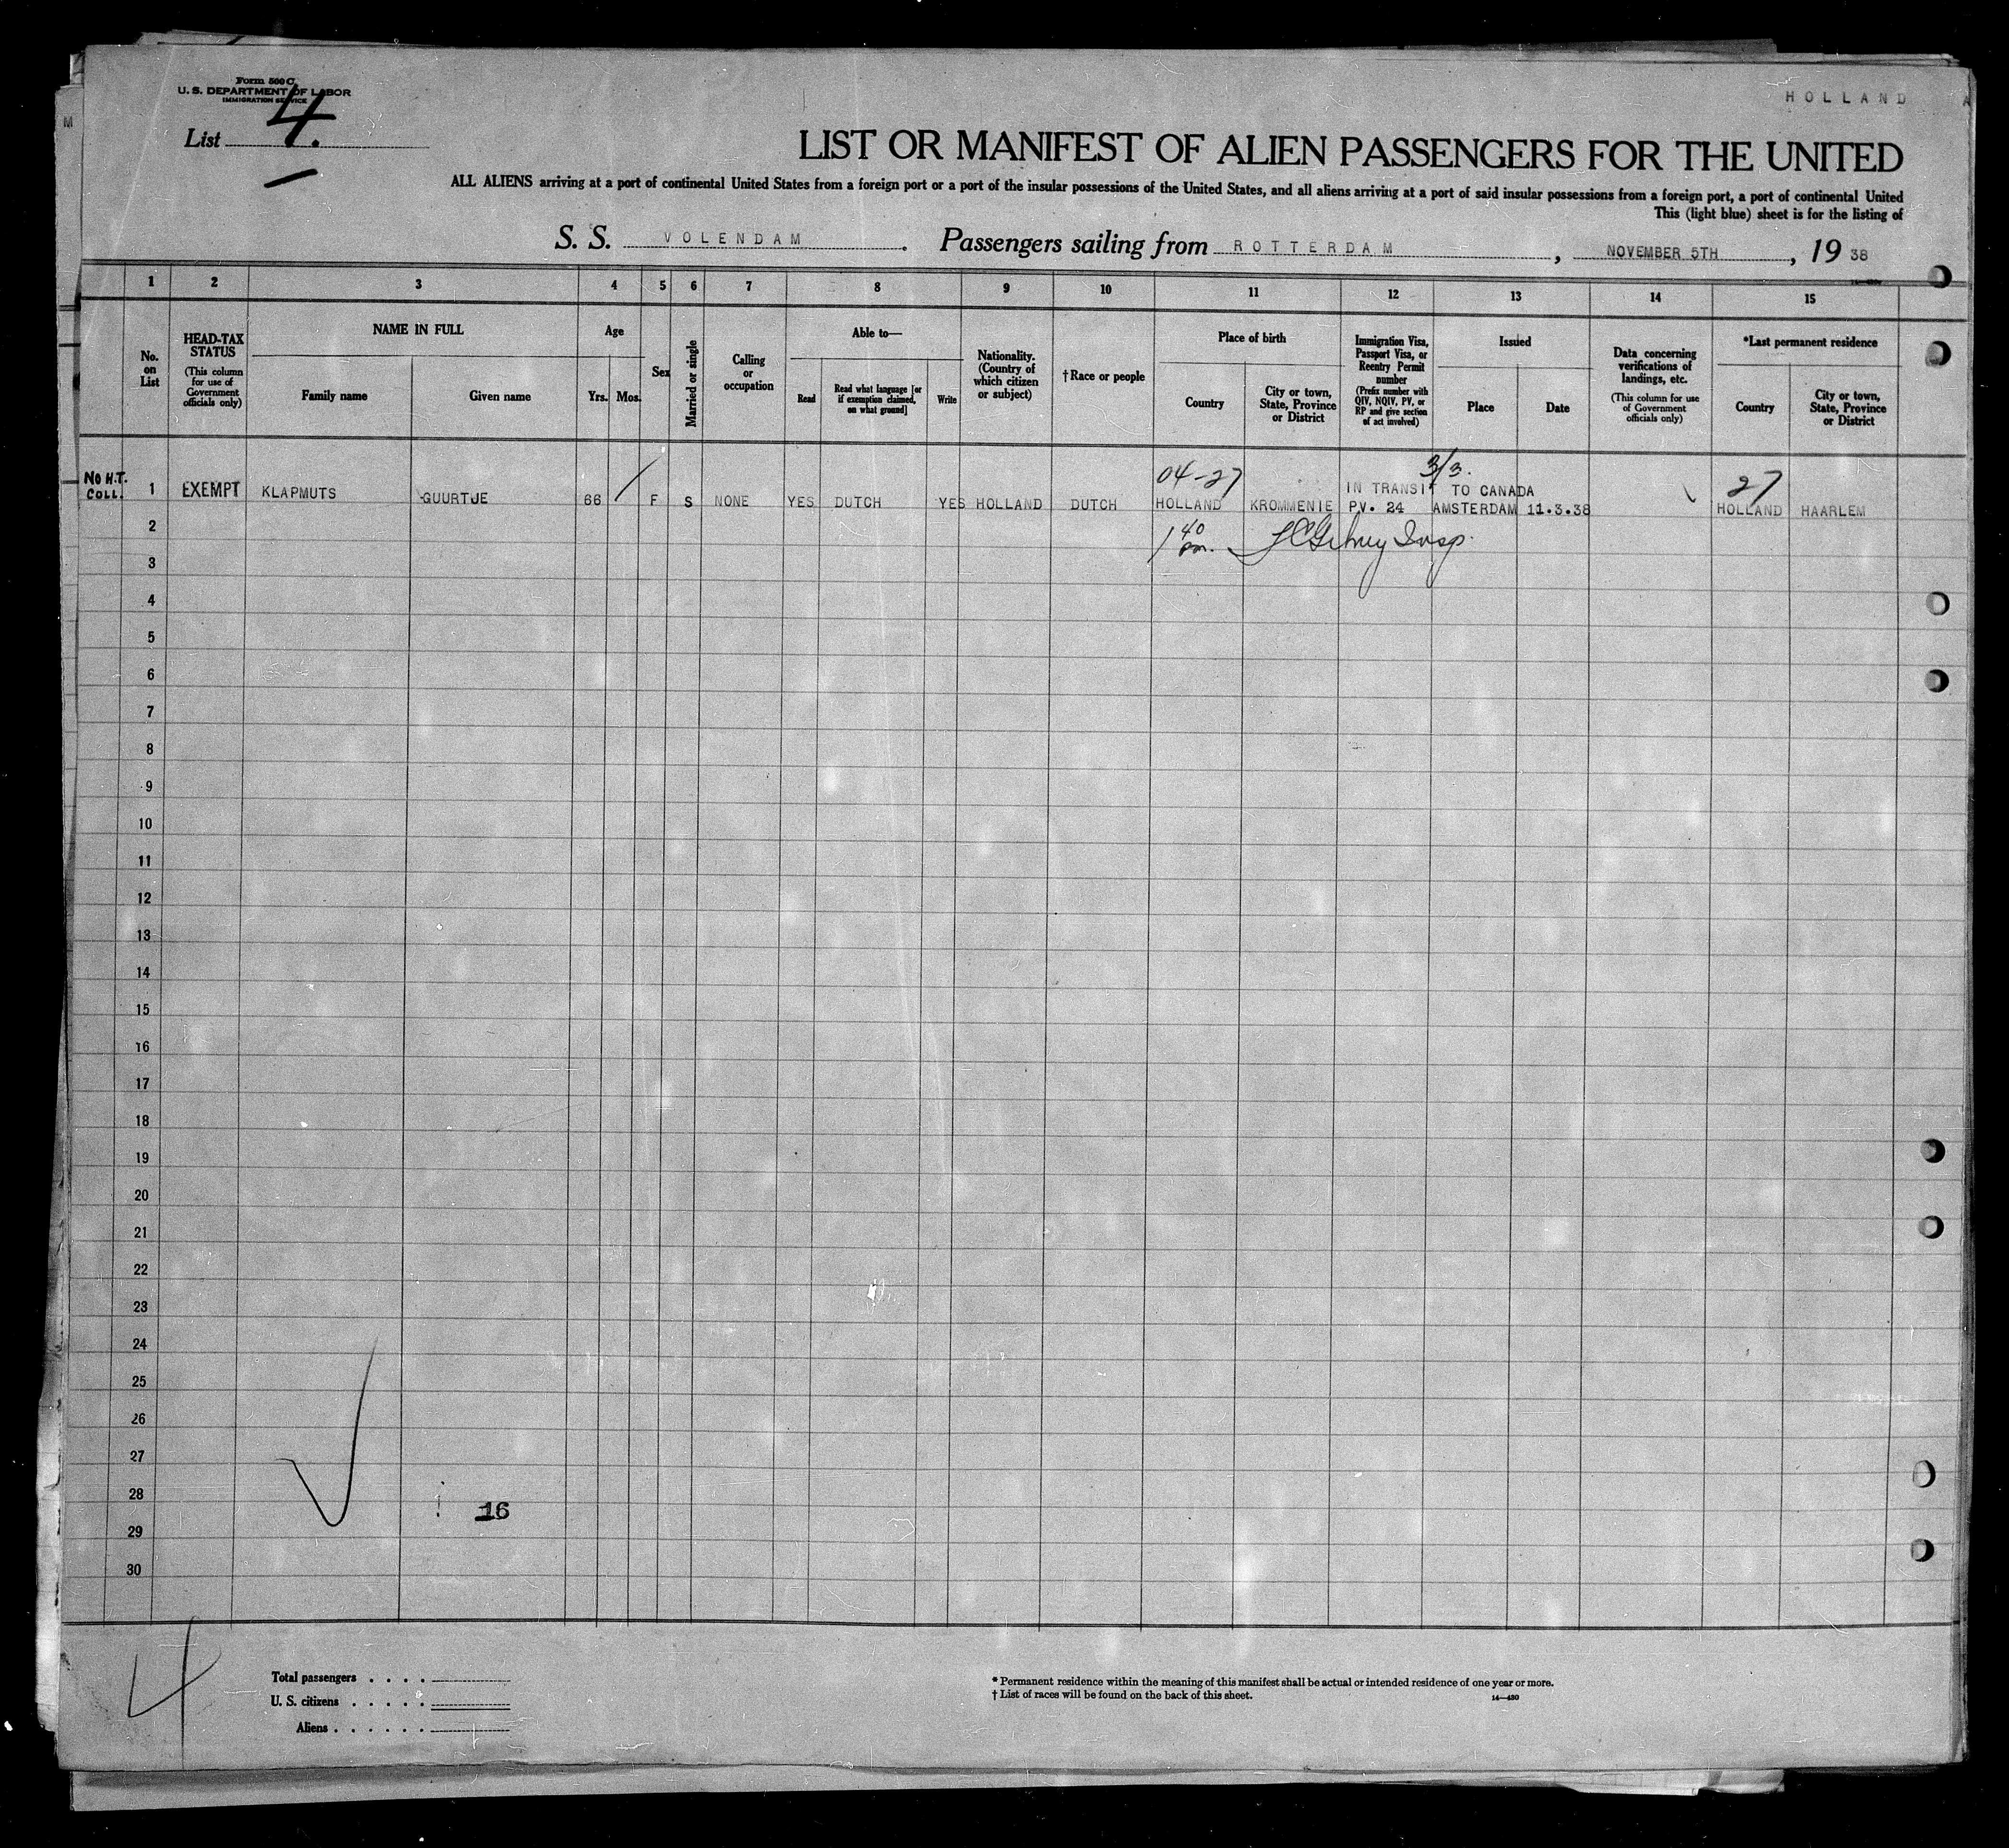 Form 500 C
U. S. DEPARTMENT OF LABOR
IMMIGRATION SERVICE
HOLLAND A
M
List 4.
LIST OR MANIFEST OF ALIEN PASSENGERS FOR THE UNITED
ALL ALIENS arriving at a port of continental United States from a foreign port or a port of the insular possessions of the United States, and all aliens arriving at a port of said insular possessions from a foreign port, a port of continental United
This (light blue) sheet is for the listing of
S. S. VOLENDAM. Passengers sailing from ROTTERDAM, NOVEMBER 5TH, 19 38
1 2 3 4 5 6 7 8 9 10 11 12 13 14 15
No. on List
HEAD-TAX STATUS
(This column for use of Government officials only)
NAME IN FULL
Family name Given name
Age
Yrs. Mos.
Sex
Married or single
Calling or occupation
Able to—
Read
Read what language [or if exemption claimed, on what ground]
Write
Nationality. (Country of which citizen or subject)
†Race or people
Place of birth
Country
City or town, State, Province or District
Immigration Visa, Passport Visa, or Reentry Permit number
(Prefix number with QIV, NQIV, PV, or RP and give section of act involved)
Issued
Place Date
Data concerning verifications of landings, etc.
(This column for use of Government officials only)
*Last permanent residence
Country
City or town, State, Province or District
04-27 3/3. 27
IN TRANSIT TO CANADA
No H.T. COLL. 1 EXEMPT KLAPMUTS GUURTJE 66 F S NONE YES DUTCH YES HOLLAND DUTCH HOLLAND KROMMENIE P.V. 24 AMSTERDAM 11.3.38 HOLLAND HAARLEM
1 40 pm. Insp.
2
3
4
5
6
7
8
9
10
11
12
13
14
15
16
17
18
19
20
21
22
23
24
25
26
27
28
16
29
30
4
Total passengers . . . .
U. S. citizens . . . . .
Aliens . . . . . .
* Permanent residence within the meaning of this manifest shall be actual or intended residence of one year or more.
† List of races will be found on the back of this sheet. 14—430